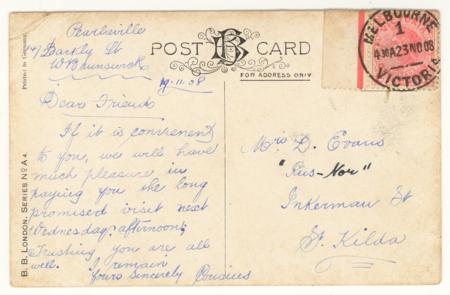 Pearlsville
141 Barkly St
W Brunswick
19.11.08
Dear Friend
If it is convenient
to you, we will have
much pleasure in
paying you the long
promised visit next
Wednesday afternoon,
Trusting you are all
well. I remain
Yours Sincerely
POST CARD
FOR ADDRESS ONLY
Printed in Germany
B. B. LONDON, SERIES No A4.
MELBOURNE
1
23 NO 08
VICTORIA
Mrs D. Evans
"Rus-Nor"
Inkerman St
St. Kilda